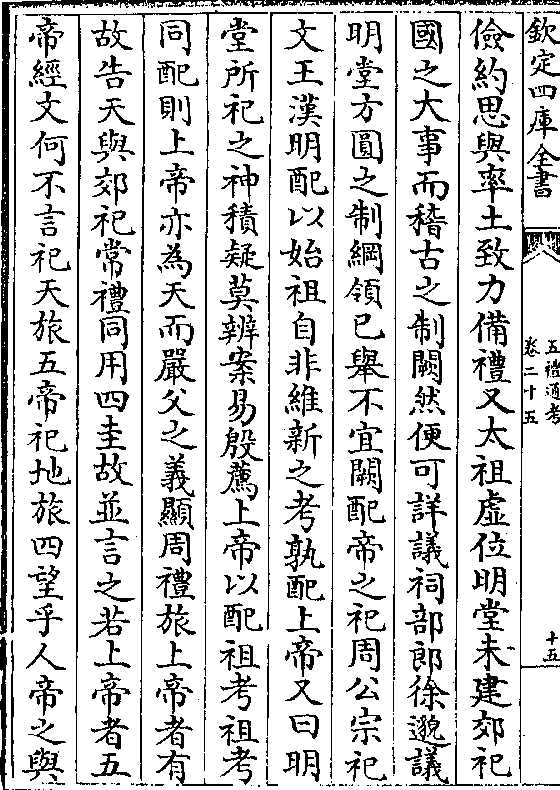 欽定四庫全書
五禮通考
卷二十五
十五
儉約思與率土致力備禮又太祖虛位明堂未建郊祀
國之大事而稽古之制闕然便可詳議祠部郎徐邈議
明堂方圓之制綱領已舉不宜闕配帝之祀周公宗祀
文王漢明配以始祖自非維新之考孰配上帝又曰明
堂所祀之神積疑莫辨案易殷薦上帝以配祖考祖考
同配則上帝亦為天而嚴父之義顯周禮旅上帝者有
故告天與郊祀常禮同用四圭故並言之若上帝者五
帝經文何不言祀天旅五帝祀地旅四望乎人帝之與